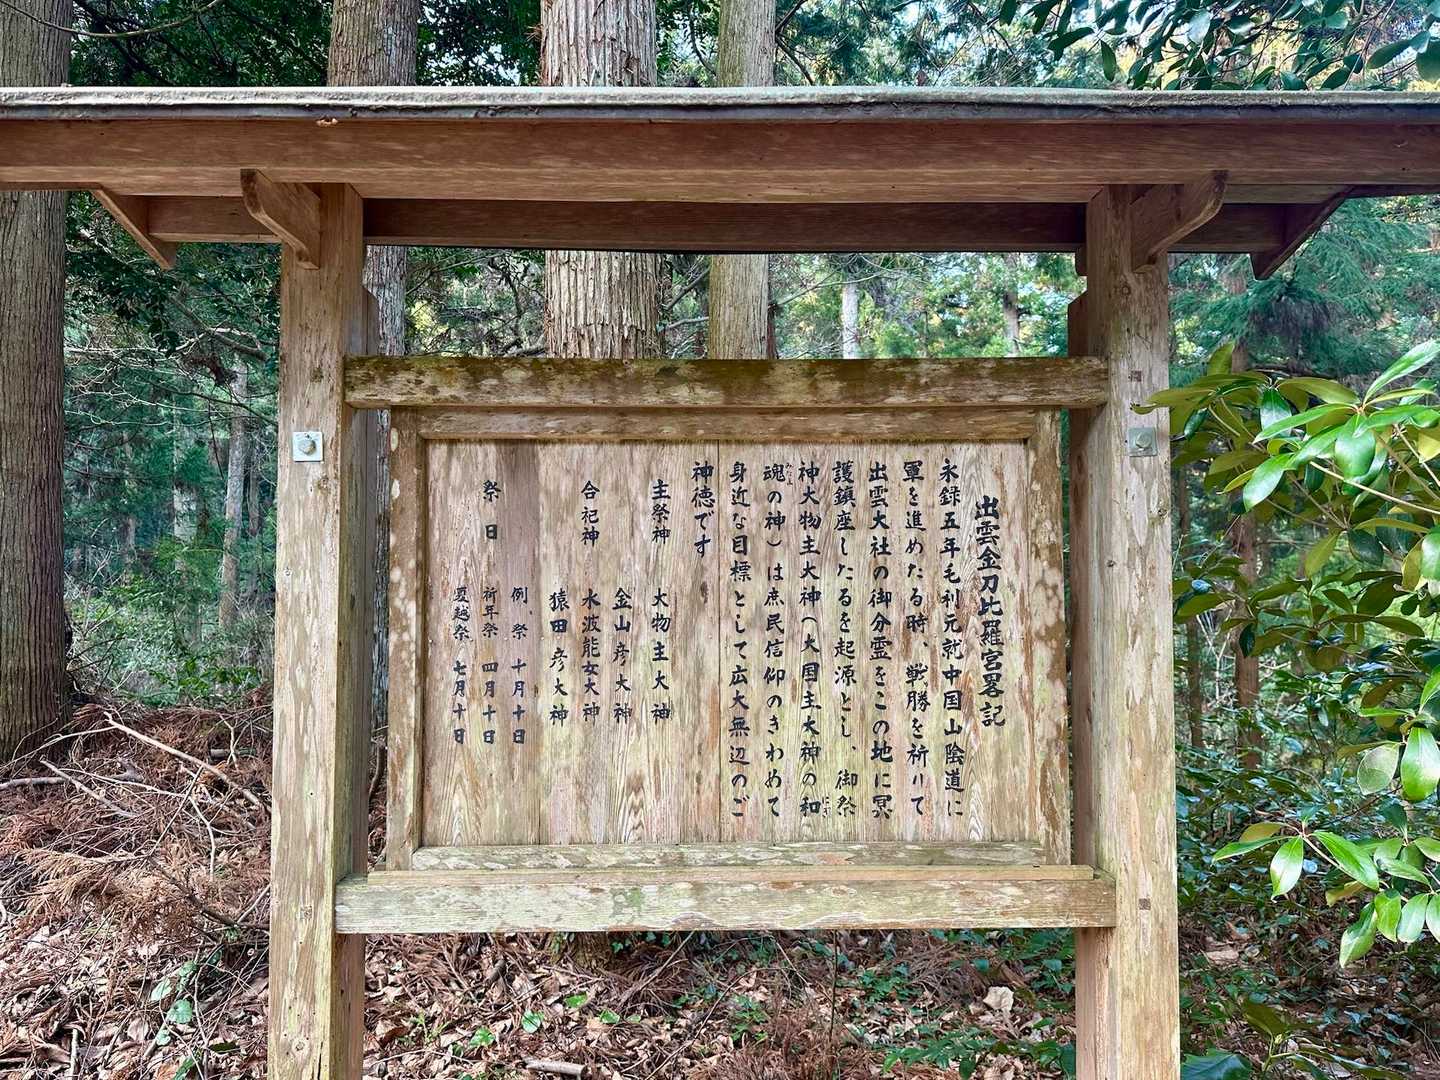 出雲金刀比羅宮畧記
永録五年毛利元就中国山陰道に
軍を進めたる時、戦勝を祈りて
出雲大社の御分霊をこの地に冥
護鎮座したるを起源とし、御祭
神大物主大神(大国主大神の和
魂の神)は庶民信仰のきわめて
身近な目標として広大無辺のご
神徳です
主祭神 大物主大神
金山彦大神
合祀神 水波能女大神
猿田彦大神
例祭 十月十日
祭日 祈年祭 四月十日
夏越祭 七月十日